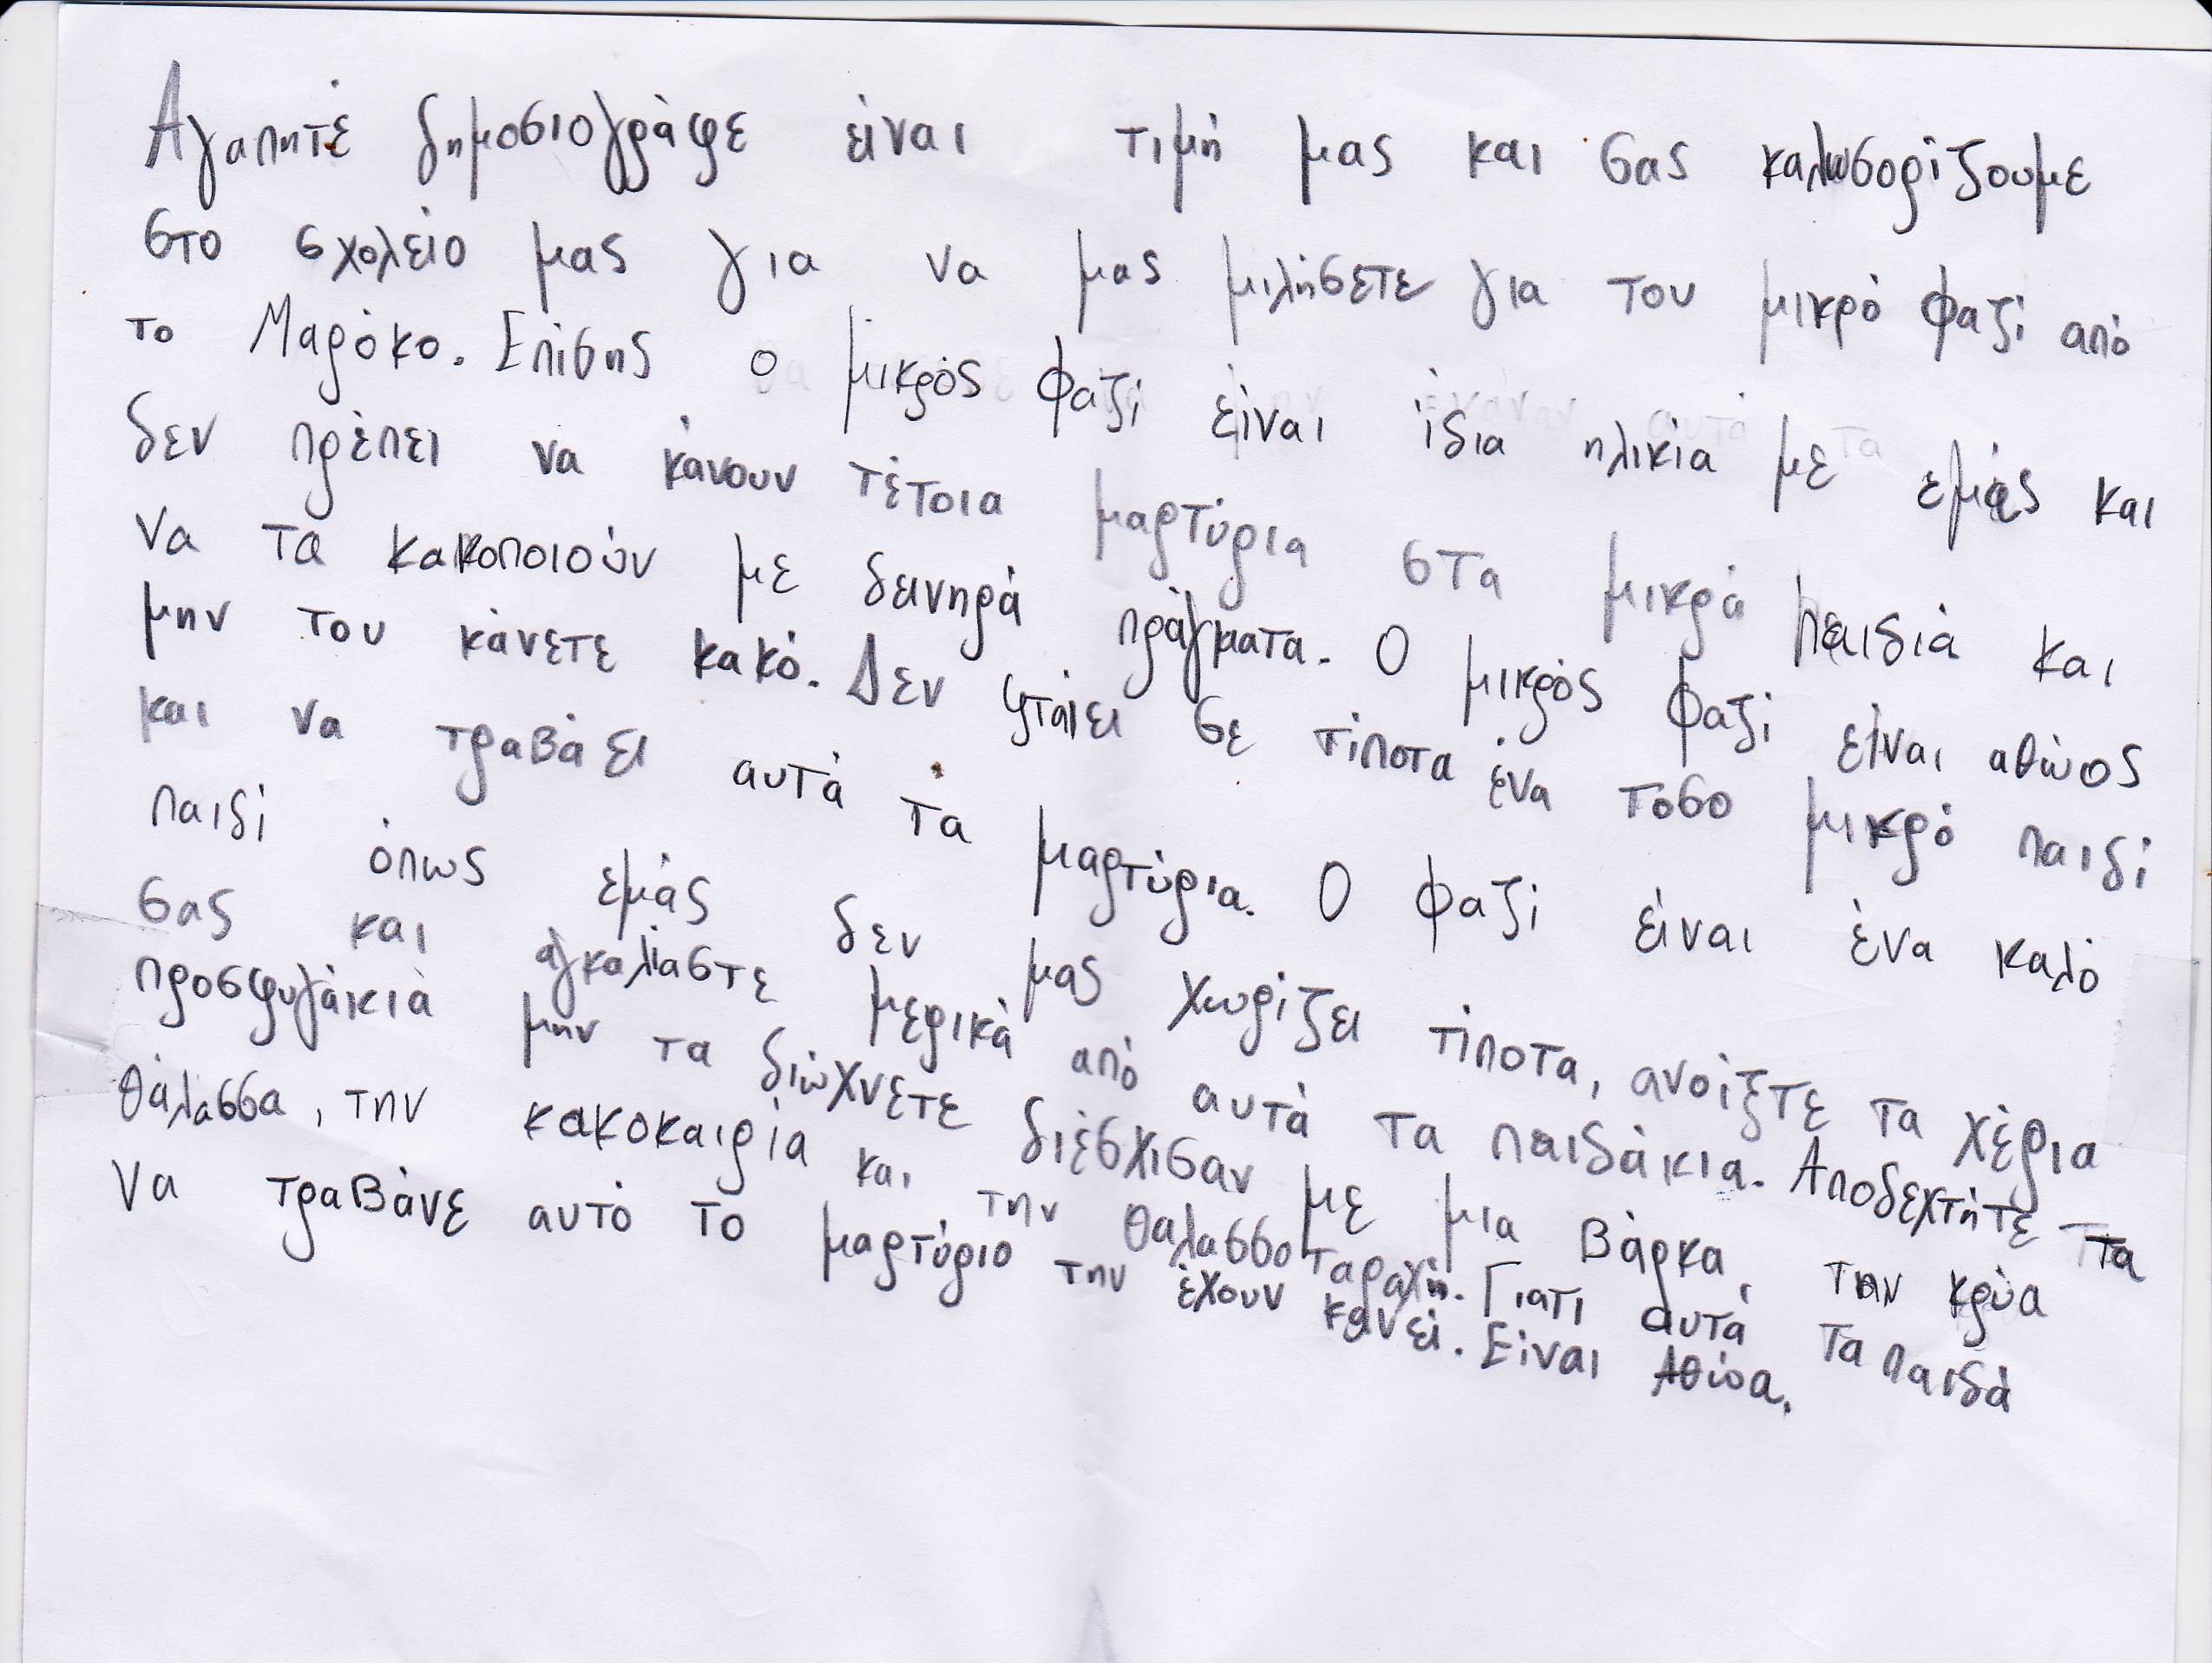 Αγαπητέ δημοσιογράφε είναι τιμή μας και σας καλωσορίζουμε
στο σχολείο μας για να μας μιλήσετε για του μικρό Φαζί από
το Μαρόκο. Επίσης ο μικρός Φαζί είναι ίδια ηλικία με εμάς και
δεν πρέπει να κάνουν τέτοια μαρτύρια στα μικρά παιδιά και
να τα κακοποιούν με δεινηρά πράγματα. Ο μικρός Φαζί είναι αθώος
μην του κάνετε κακό. Δεν φταίει σε τίποτα ένα τοσο μικρό παιδί
και να τραβάει αυτά τα μαρτύρια. Ο Φαζί είναι ένα καλό
παιδί όπως εμάς δεν μας χωρίζει τίποτα, ανοίξτε τα χέρια
σας και αγκαλιάστε μερικά από αυτά τα παιδάκια. Αποδεχτήτε τα
προσφυγάκια μην τα διώχνετε διέσχισαν με μια βάρκα, την κρύα
θάλασσα, την κακοκαιρία και την θαλασσοταραχή. Γιατι αυτά τα παιδά
να τραβάνε αυτό το μαρτύριο την έχουν κανει. Είναι Αθώα.